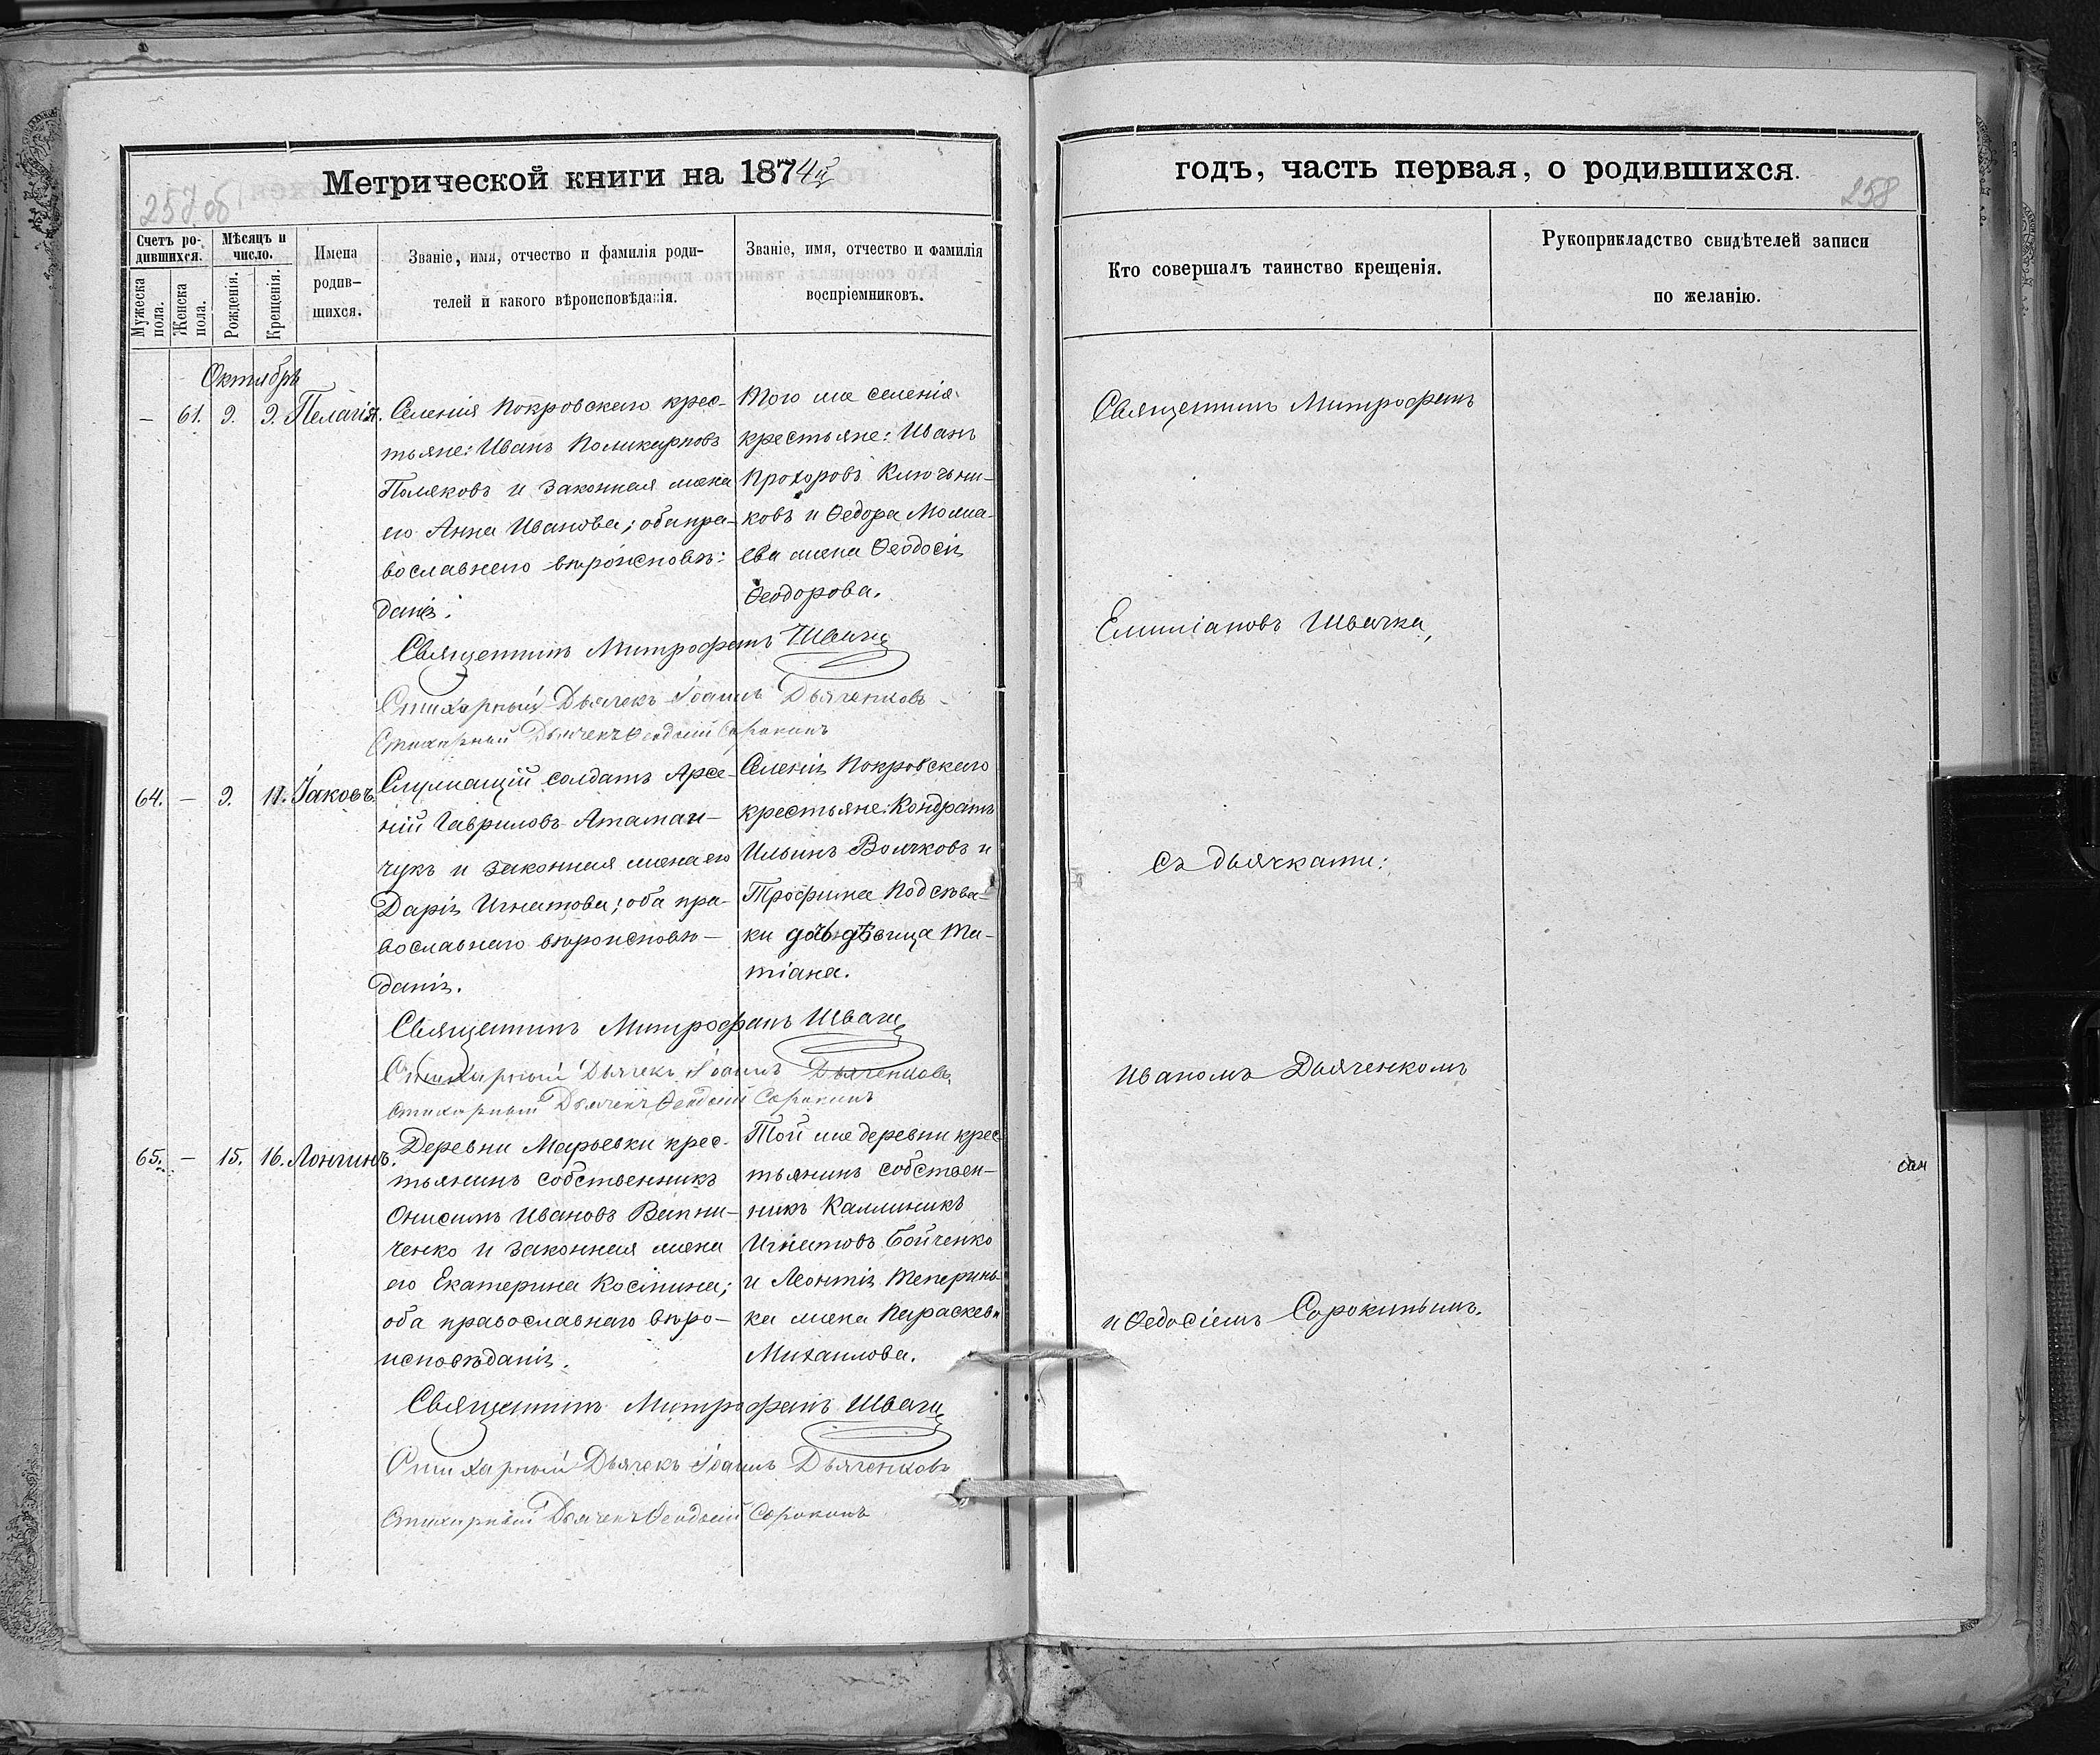 Метрической книги на 1874й
257 об
Счетъ ро-
дившихся.
Мѣсяцъ и
число.
Мужеска
пола.
Женска
пола.
Рожденія.
Крещенія.
Имена
родив-
шихся.
Званіе, имя, отчество и фамилія роди-
телей и какого вѣроисповѣданія.
Званіе, имя, отчество и фамилія
воспріемниковъ.
Октябрь
— 61. 9. 9. Пелагія.
Селенія Покровскаго крес-
тьяне: Иванъ Поликарповъ
Поляковъ и законная жена
его Анна Иванова; оба пра-
вославнаго вѣроисповѣ-
данія.
Того же селенія
крестьяне: Иванъ
Прохоровъ Ключни-
ковъ и Ѳедора
жена Ѳеодосія
Ѳеодорова.
Священникъ Митрофанъ Швачка
Стихарный Дьячекъ Іоаннъ Дьяченковъ
Стихарный Дьячекъ Ѳеодосій Сорокинъ
64. — 9. 11. Іаковъ.
Служащій солдатъ Арсе-
ній Гавриловъ Атаман-
чукъ и законная жена его
Дарія Игнатова; оба пра-
вославнаго вѣроисповѣ-
данія.
Селенія Покровскаго
крестьяне: Кондратъ
Ильинъ Волчковъ и
Трофима Подсѣва-
ки дочь дѣвица Та-
тіана.
Священникъ Митрофанъ Швачка
Стихарный Дьячекъ Іоаннъ Дьяченковъ
Стихарный Дьячекъ Ѳеодосій Сорокинъ
65. — 15. 16. Лонгинъ.
Деревни Марьевки крес-
тьянинъ собственникъ
Онисимъ Ивановъ Випни-
ченко и законная жена
его Екатерина Косьмина;
оба православнаго вѣро-
исповѣданія.
Той же деревни крес-
тьянинъ собствен-
никъ Каллиникъ
Игнатовъ Бойченко
и Леонтія Тепринь-
ка жена Параскева
Михаилова.
Священникъ Митрофанъ Швачка
Стихарный Дьячекъ Іоаннъ Дьяченковъ
Стихарный Дьячекъ Ѳеодосій Сорокинъ
годъ, часть первая, о родившихся.
258
Кто совершалъ таинство крещенія.
Рукоприкладство свидѣтелей записи
по желанію.
Священникъ Митрофанъ
Емиліановъ Швачка,
съ дьячками:
Иваномъ Дьяченкомъ
и Ѳедосіемъ Сорокинымъ.